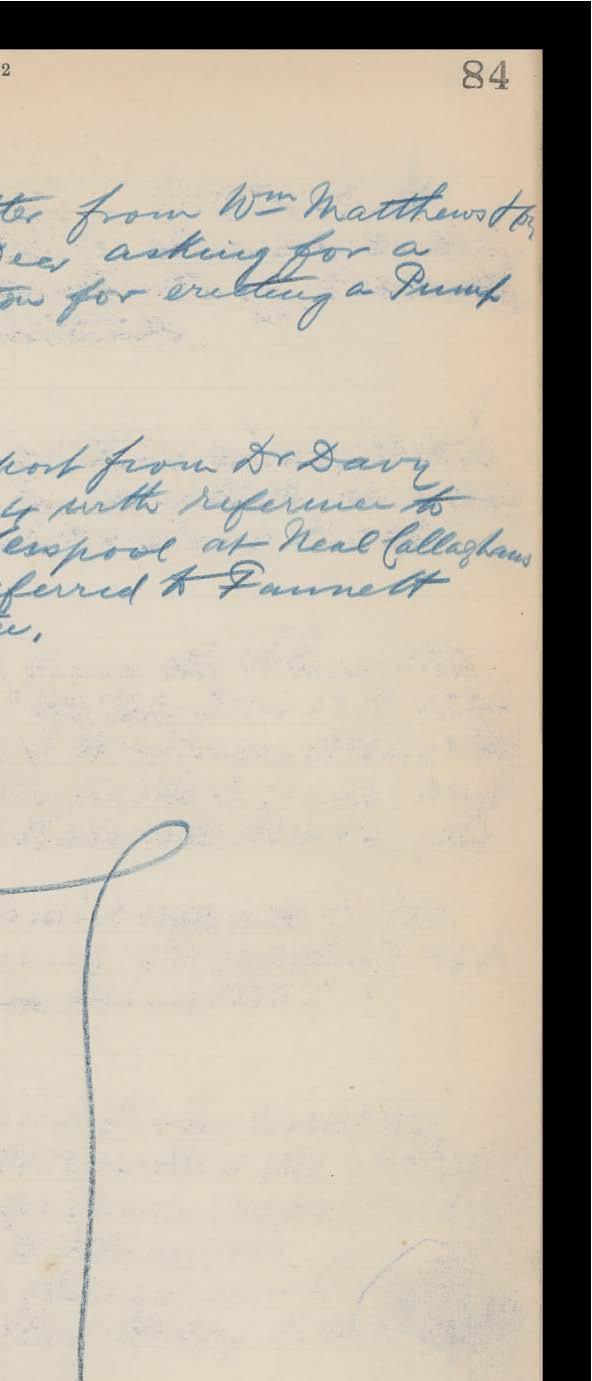 2 84
ter from Wm Matthews
asking for a
for erecting a Pump
port from Dr Davy
with reference to
Cesspool at Neal Callaghans
eferred to Fannett